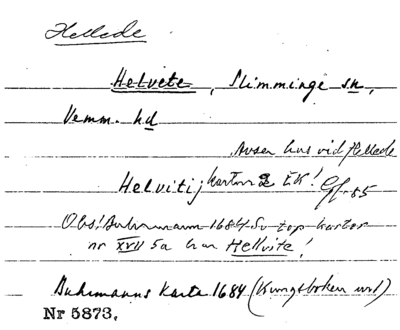 Hellede
Helvete, Slimminge sn,
Vemm. hd
Avser hus vid Hellede
Helvitij kartan 2 EK! Gft-55
Obs! Buhrmann 1684 Sv top kartor
nr XVII 5a har Hellvite!
Buhrmanns Karta 1684 (Kungsboken
Nr 5873.